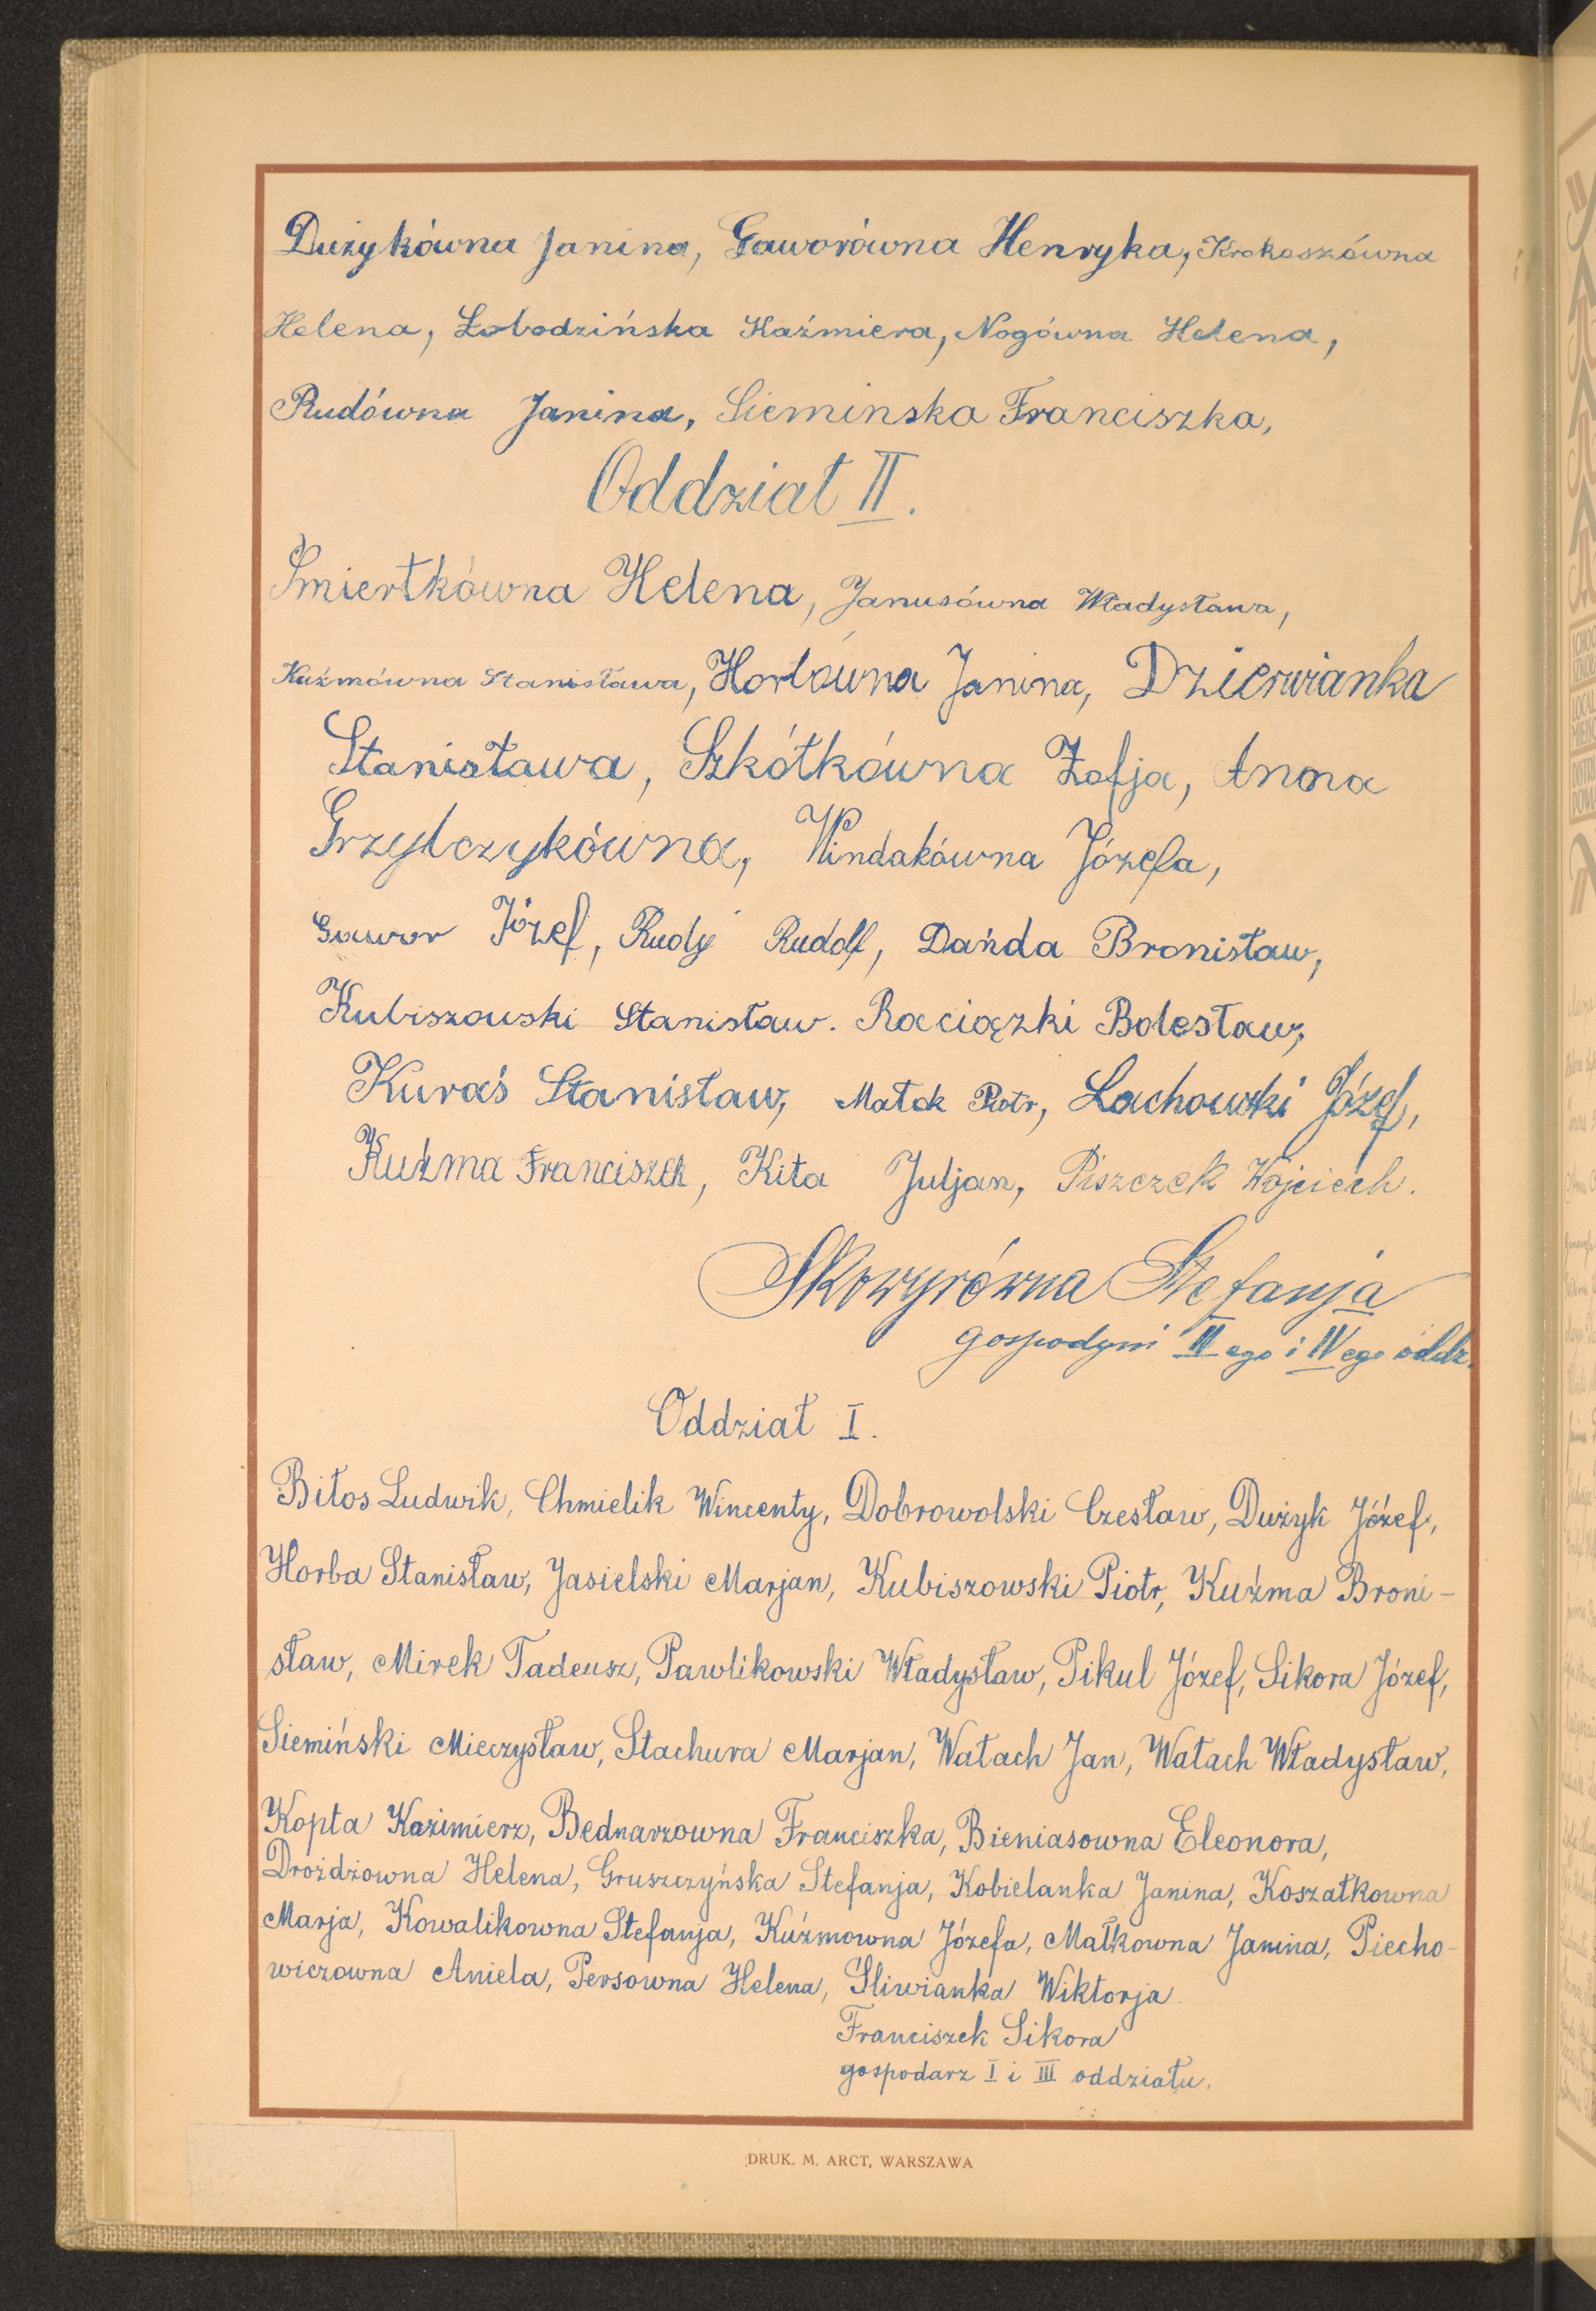 Dużykówna Janina, Gaworówna Henryka, Krokoszówna
Helena, Łobodzińska Kaźmiera, Nogówna Helena,
Rudówna Janina, Sieminska Franciszka,
Oddział II.
Śmiertkówna Helena, Janusówna Władysława,
Kuźmówna Stanisława, Hortówna Janina, Dzierwianka
Stanisława, Szkótkówna Zofja, Anna
Grzybczykówna, Windakówna Józefa,
Gawor Józef, Rudy Rudolf, Dańda Bronisław,
Kubiszowski Stanisław. Raciązki Bolesław,
Kuraś Stanisław, Matok Piotr, Lachowski Józef,
Kuźma Franciszek, Kita Juljan, Piszczek Wojciech.
Skowyrówna Stefanja
gospodyni II ego i IV ego oddz.
Oddział I.
Bitos Ludwik, Chmielik Wincenty, Dobrowolski Czesław, Dużyk Józef,
Horba Stanisław, Jasielski Marjan, Kubiszowski Piotr, Kuźma Broni-
sław, Mirek Tadeusz, Pawlikowski Władysław, Pikul Józef, Sikora Józef,
Siemiński Mieczysław, Stachura Marjan, Watach Jan, Watach Władysław,
Kopta Kazimierz, Bednarzowna Franciszka, Bieniasowna Eleonora,
Drożdżowna Helena, Gruszczyńska Stefanja, Kobielanka Janina, Koszatkowna
Marja, Kowalikowna Stefanja, Kuźmowna Józefa, Małkowna Janina, Piecho-
wiczowna Aniela, Persowna Helena, Śliwianka Wiktorja
Franciszek Sikora
gospodarz I i III oddziału.
DRUK. M. ARCT, WARSZAWA